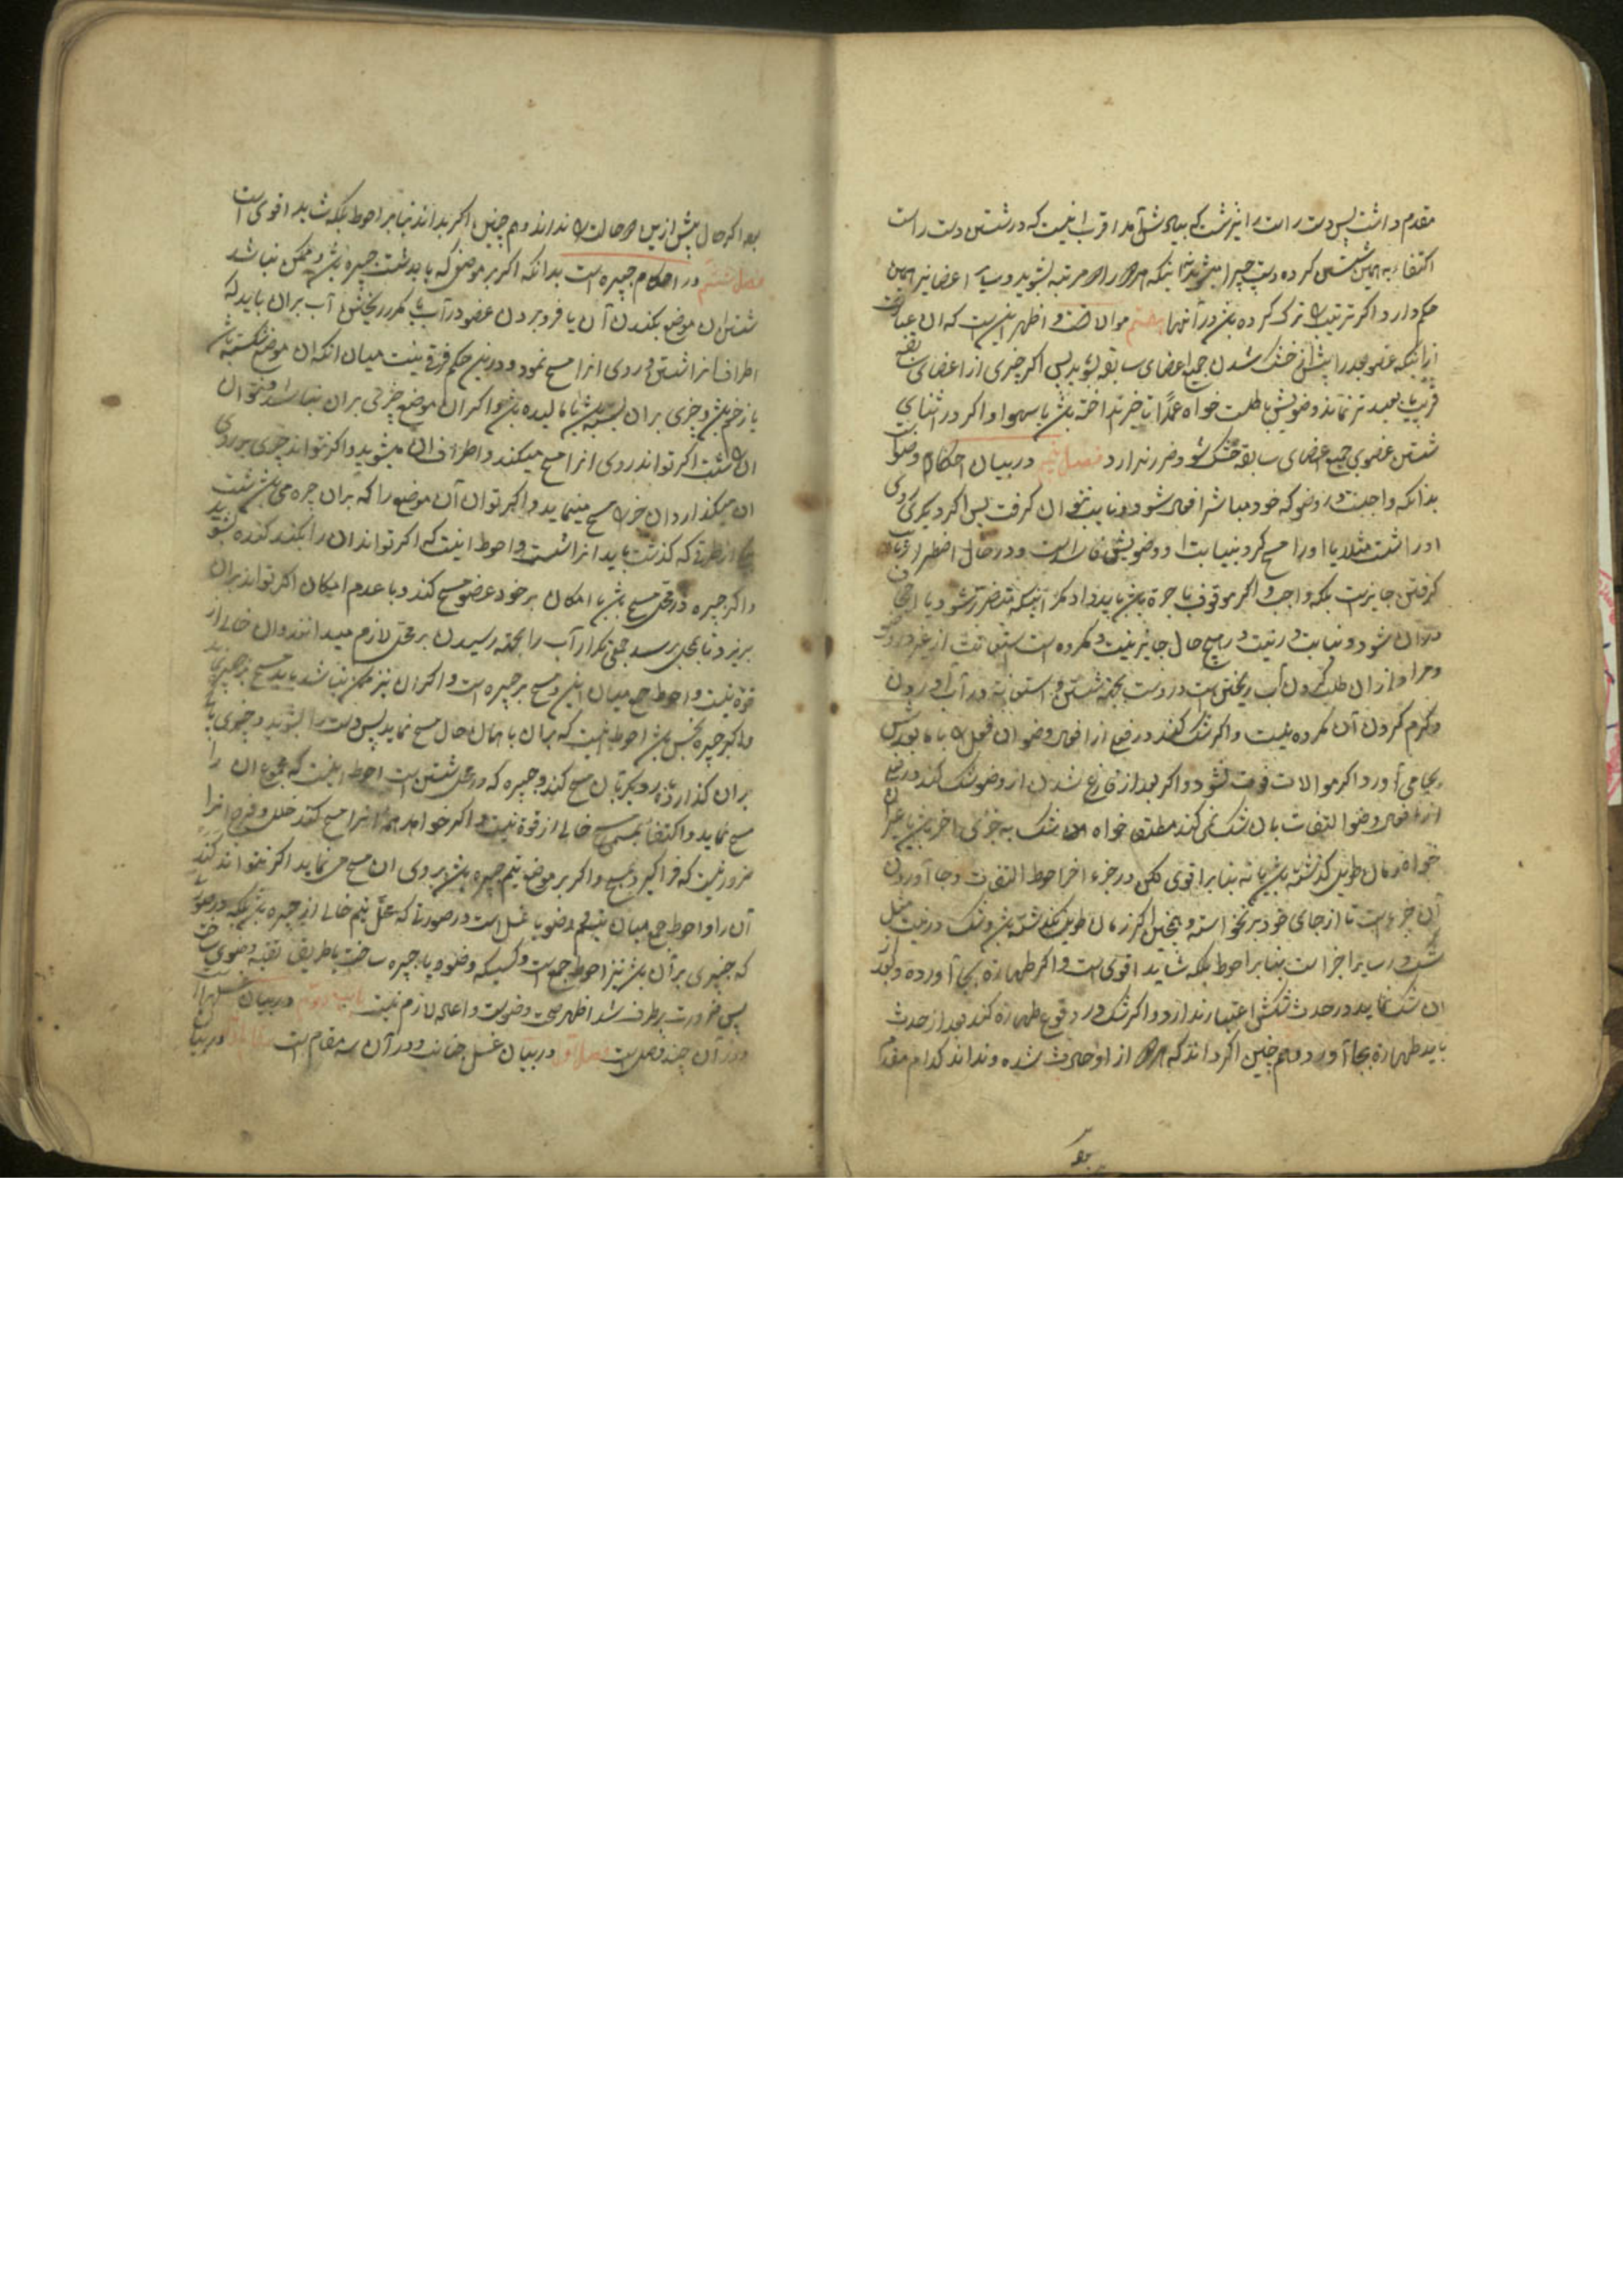 مقدم داشت پس دست راست را نیز شست که بیاد آمد اقرب اینست که در شستن دست راست
اکتفاء به همین شستن کرده دست چپ را میشوید نه اینکه را مرتبه بشوید و سایر اعضا نیز همین
حکم دارد اگر ترتیب ترک کرده باشد در آنها هشتم موالاتست و اظهر اینست که آن عبارت
از اینکه عضو بعد را پیش از خشک شدن جمیع اعضای سابقه بشوید پس اگر چیزی از اعضای سابقه
تر نماند وضویش باطلست خواه عمداً تاخیر انداخته باشد یا سهوا و اگر در اثنای
شستن عضوی جمیع اعضای سابقه خشک شود ضرر ندارد فصل پنجم در بیان احکام وضو
بدانکه واجبست در وضو که خود مباشر افعال شود و نایب نتوان گرفت پس اگر دیگری روی
او را شست مثلا یا او را مسح کرد به نیابت او وضویش فاسد است و در حال اضطرار نایب
گرفتن جایز است بلکه واجب و اگر موقوف باجرة باشد باید داد مگر آنکه متضرر شود
شود و نیابت در نیت در هیچ حال جایز نیست و مکروه است استعانت از غیر در وضو
و مراد از آن طلب کردن آب ریختن است در دست بجهة شستن و استعانة در آب آوردن
و گرم کردن آن مکروه نیست و اگر شک کند در فعلی از افعال وضو آن فعل را با ما بعدش
بجا می آورد اگر موالات فوت نشود و اگر بعد از فارغ شدن از وضو شک کند در فعلی
از افعال وضو التفات بان شک نمی کند مطلق خواه شک به جزء اخر باشد یا غیر آن
خواه زمان طویل گذشته باشد یا نه بنا بر اقوی لکن در جزء اخر احوط التفات و بجا آوردن
آن جزء است تا از جای خود بر نخواسته و همچنین اگر زمان طویل نگذشته باشد و شک در نیت مثل
شک در سایر اجزا است بنا بر احوط بلکه شاید اقوی است و اگر طهارة بجا آورده و بعد از
ان شک نماید در حدث شکش اعتبار ندارد و اگر شک در وقوع طهارة کند بعد از حدث
باید طهارة بجا آورد و هم چنین اگر داند که از او حادث شده و نداند کدام مقدم
بعد
بعد اگر حال پیش از این حالت را نداند و هم چنین اگر بداند بنا بر احوط بلکه شاید اقوی است
فصل ششم در احکام جبیره است بدانکه اگر بر موضعی که باید شست جبیره باشد و ممکن نباشد
شستن ان موضع بکندن آن یا فرو بردن عضو در آب یا مکرر ریختن آب بران باید که
اطراف انرا شستن و روی انرا مسح نمود و در این حکم فرقی نیست میان انکه ان موضع شکسته باشد
یا زخم باشد و چیزی بر ان بسته باشد یا مالیده باشد و اگر ان موضع چیزی بران نباشد و نتوان
انرا شست اگر تواند روی انرا مسح میکند و اطراف ان میشوید و اگر نتواند چیزی بر روی
ان میگذارد ان چیز را مسح مینماید و اگر توان آن موضع را که بران جبیره می باشد شست
از طریقی که گذشت باید انرا شست و احوط اینست که اگر تواند ان را بکند کنده بشوید
و اگر جبیره در محل مسح باشد با امکان بر خود عضو مسح کند و با عدم امکان اگر تواند بران
بریزد تا بمحل برسد جمعی تکرار آب را بجهة رسیدن بر محل لازم میدانند و ان خالی از
قوة نیست و احوط جمع میان این و مسح بر جبیره است و اگر ان نیز ممکن نباشد باید مسح بر جبیره نماید
و اگر جبیره نجس باشد احوط اینست که بران با همان حال مسح نماید پس دست را بشوید و چیزی پاک
بران گذارد و بار دیگر بان مسح کند و جبیره که در محل شستن است احوط اینست که مجموع ان را
مسح نماید و اکتفا بمسمی مسح خالی از قوة نیست و اگر خواهد همه انرا مسح کند خلل و فرج انرا
ضرور نیست که فرا گیرد مسح و اگر بر موضع تیمم جبیره باشد بر روی ان مسح می نماید اگر نتواند کند
آن را و احوط جمع میان تیمم و وضو یا غسل است در صورتی که محل تیمم خالی از جبیره باشد بلکه در صورتی
که جبیره بر آن باشد نیز احوط جمع است و کسیکه وضو با جبیره ساخت یا طریق تقیه وضوی ساخت
پس ضرورت برطرف شد اظهر صحت وضوست و اعاده لازم نیست باب دویم در بیان غسلها است
و در آن چند فصل است فصل اول در بیان غسل جنابت و در آن سه مقام است مقام اول در بیان